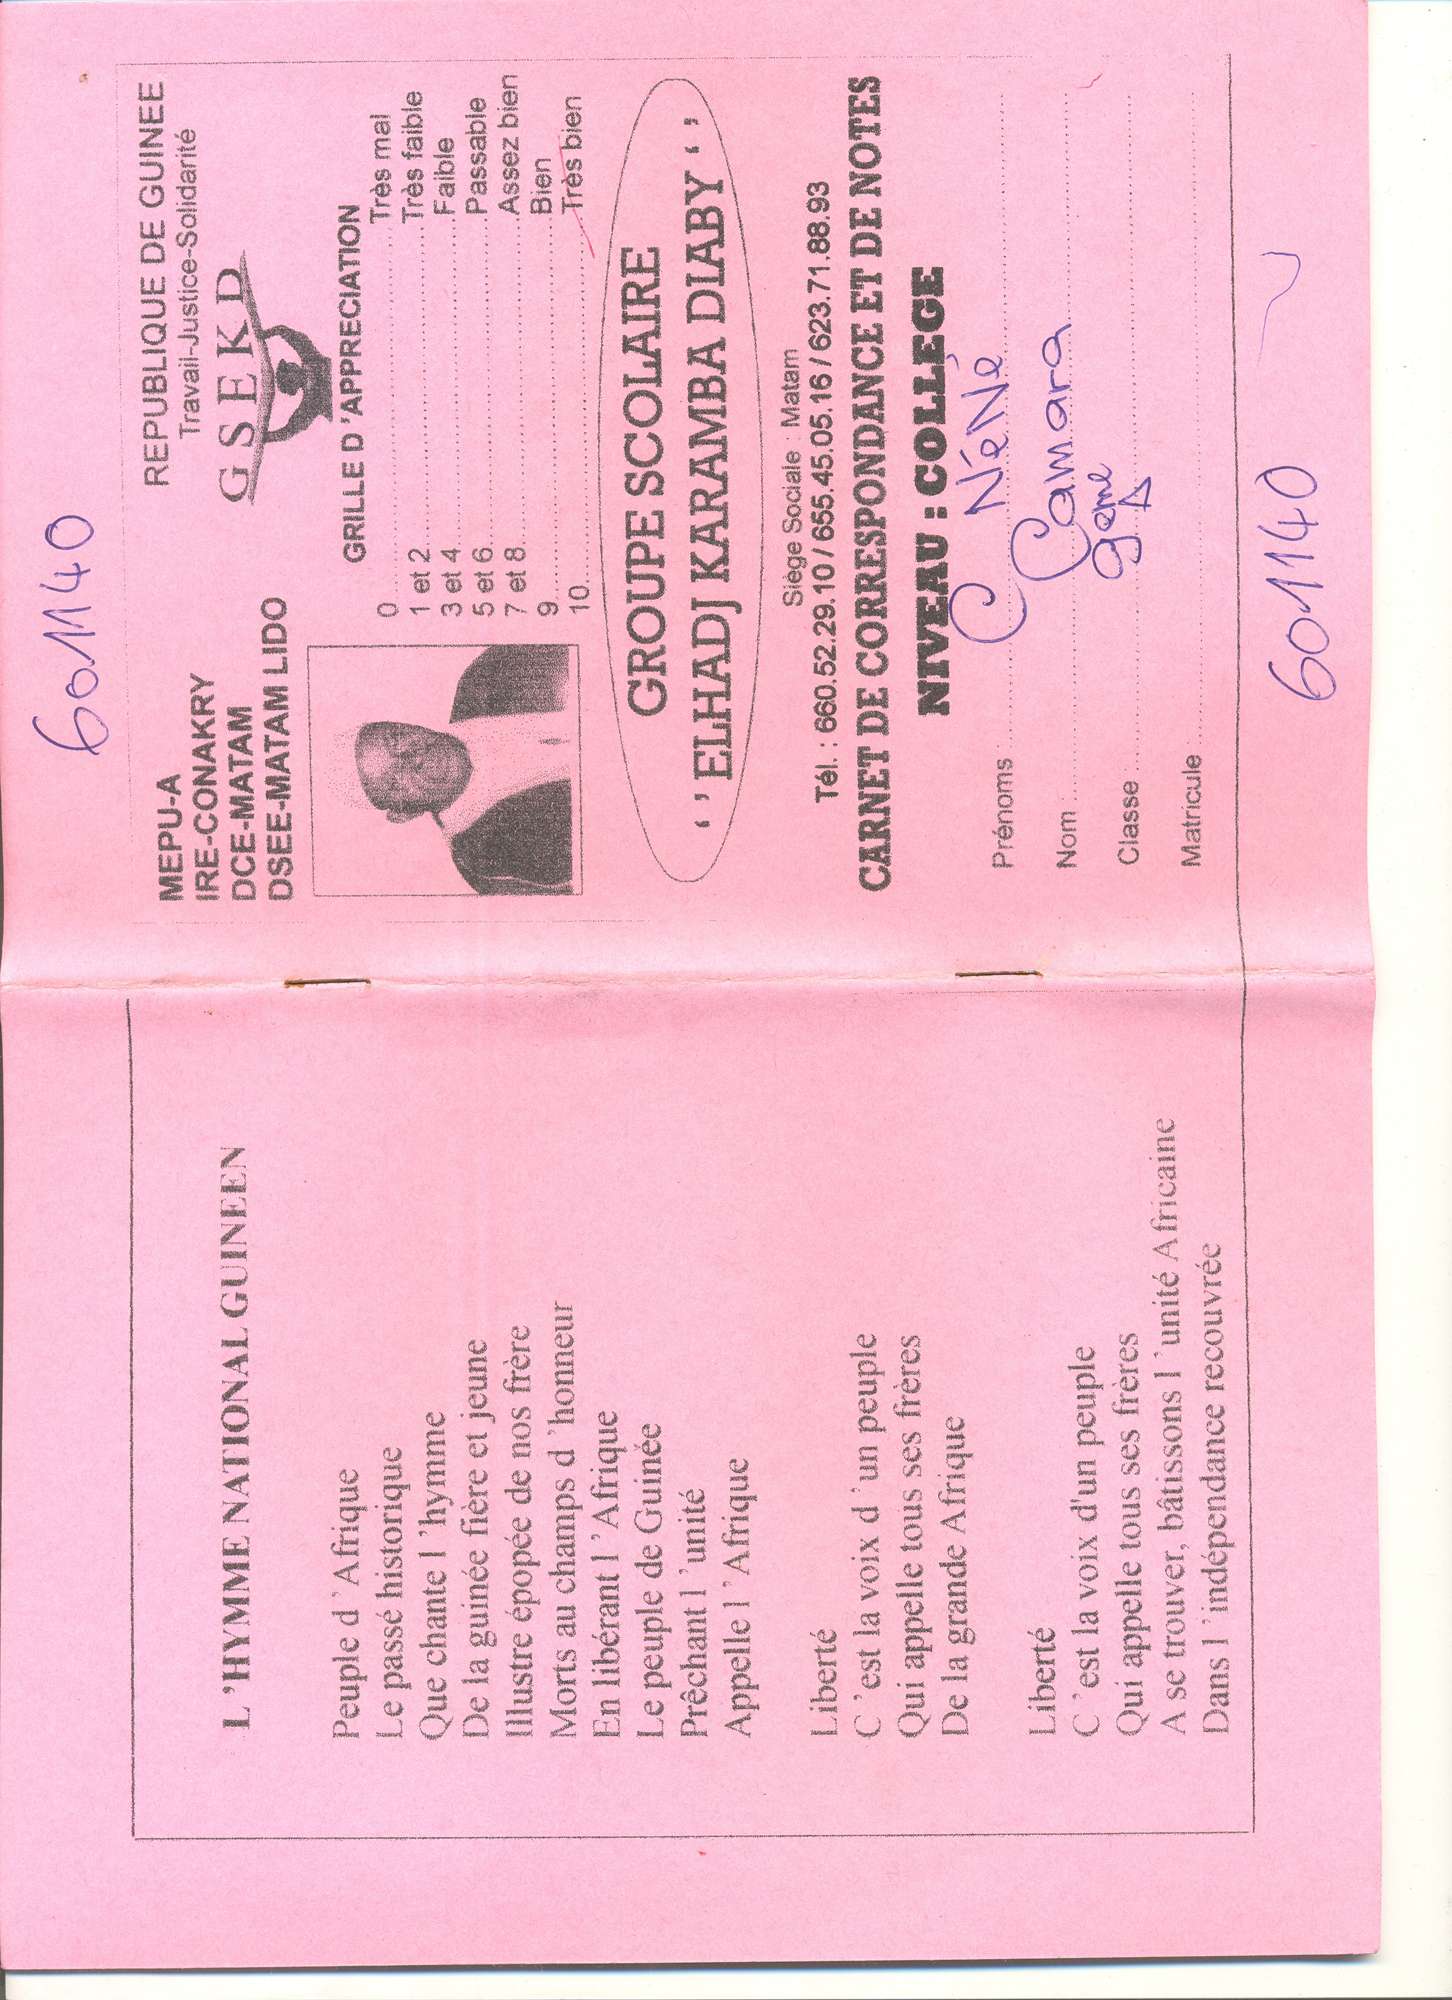 L 'HYMME NATIONAL GUINEEN
Peuple d ' Afrique
Le passé historique
Que chante l 'hymme
De la guinée fière et jeune
Illustre épopée de nos frère
Morts au champs d 'honneur
En libérant l ' Afrique
Le peuple de Guinée
Prêchant l ' unité
Appelle l ' Afrique
Liberté
C 'est la voix d 'un peuple
Qui appelle tous ses frères
De la grande Afrique
Liberté
C 'est la voix d'un peuple
Qui appelle tous ses frères
A se trouver, bâtissons l 'unité Africaine
Dans l 'indépendance recouvrée
601140
MEPU-A
IRE-CONAKRY
DCE-MATAM
DSEE-MATAM LIDO
REPUBLIQUE DE GUINEE
Travail-Justice-Solidarité
G S E K D
GRILLE D 'APPRECIATION
0 Très mal
1 et 2 Très faible
3 et 4 Faible
5 et 6 Passable
7 et 8 Assez bien
9 Bien
10 Très bien
GROUPE SCOLAIRE
‘ ’ ELHADJ KARAMBA DIABY ‘ ’
Siège Sociale : Matam
Tél. : 660.52.29.10 / 655.45.05.16 / 623.71.88.93
CARNET DE CORRESPONDANCE ET DE NOTES
NIVEAU : COLLEGE
Prénoms NéNé
Nom : Camara
Classe : 9eme A
Matricule
601140